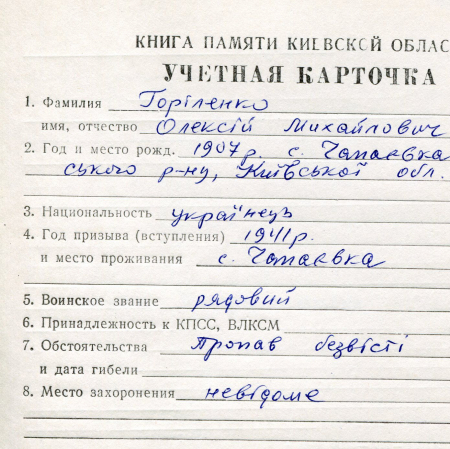 КНИГА ПАМЯТИ КИЕВСКОЙ ОБЛАС
УЧЕТНАЯ КАРТОЧКА
1. Фамилия Горіленко
имя, отчество Олексій Михайлович
2. Год и место рожд. 1907 р. с. Чапаєвка
ського р-ну, Київської обл.
3. Национальность українець
4. Год призыва (вступления) 1941 р.
и место проживания с. Чапаєвка
5. Воинское звание рядовий
6. Принадлежность к КПСС, ВЛКСМ
7. Обстоятельства Пропав безвісті
и дата гибели
8. Место захоронения невідоме